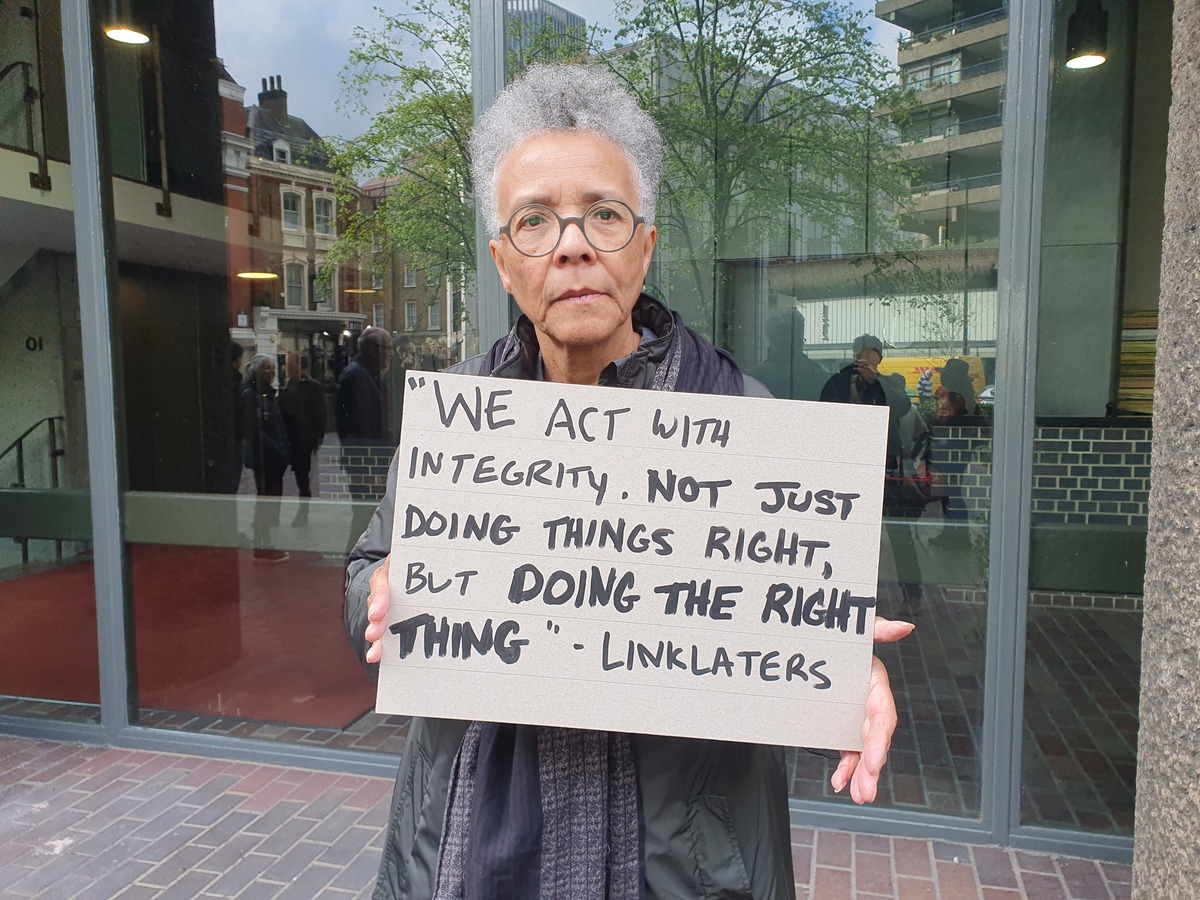 "WE ACT WITH
INTEGRITY. NOT JUST
DOING THINGS RIGHT,
BUT DOING THE RIGHT
THING" - LINKLATERS
01
DHL